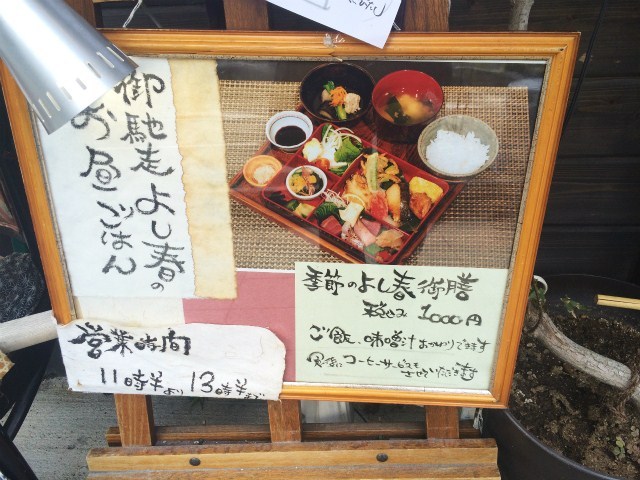 御馳走よし春の
お昼ごはん
季節のよし春御膳
税込み 1000円
ご飯、味噌汁おかわりできます
食後にコーヒーサービスも
させていただきます
営業時間
11時半より 13時半まで